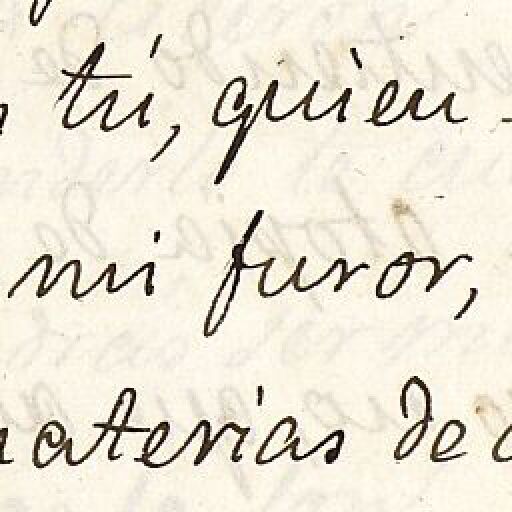 tú, quien
mi furor,
materias de